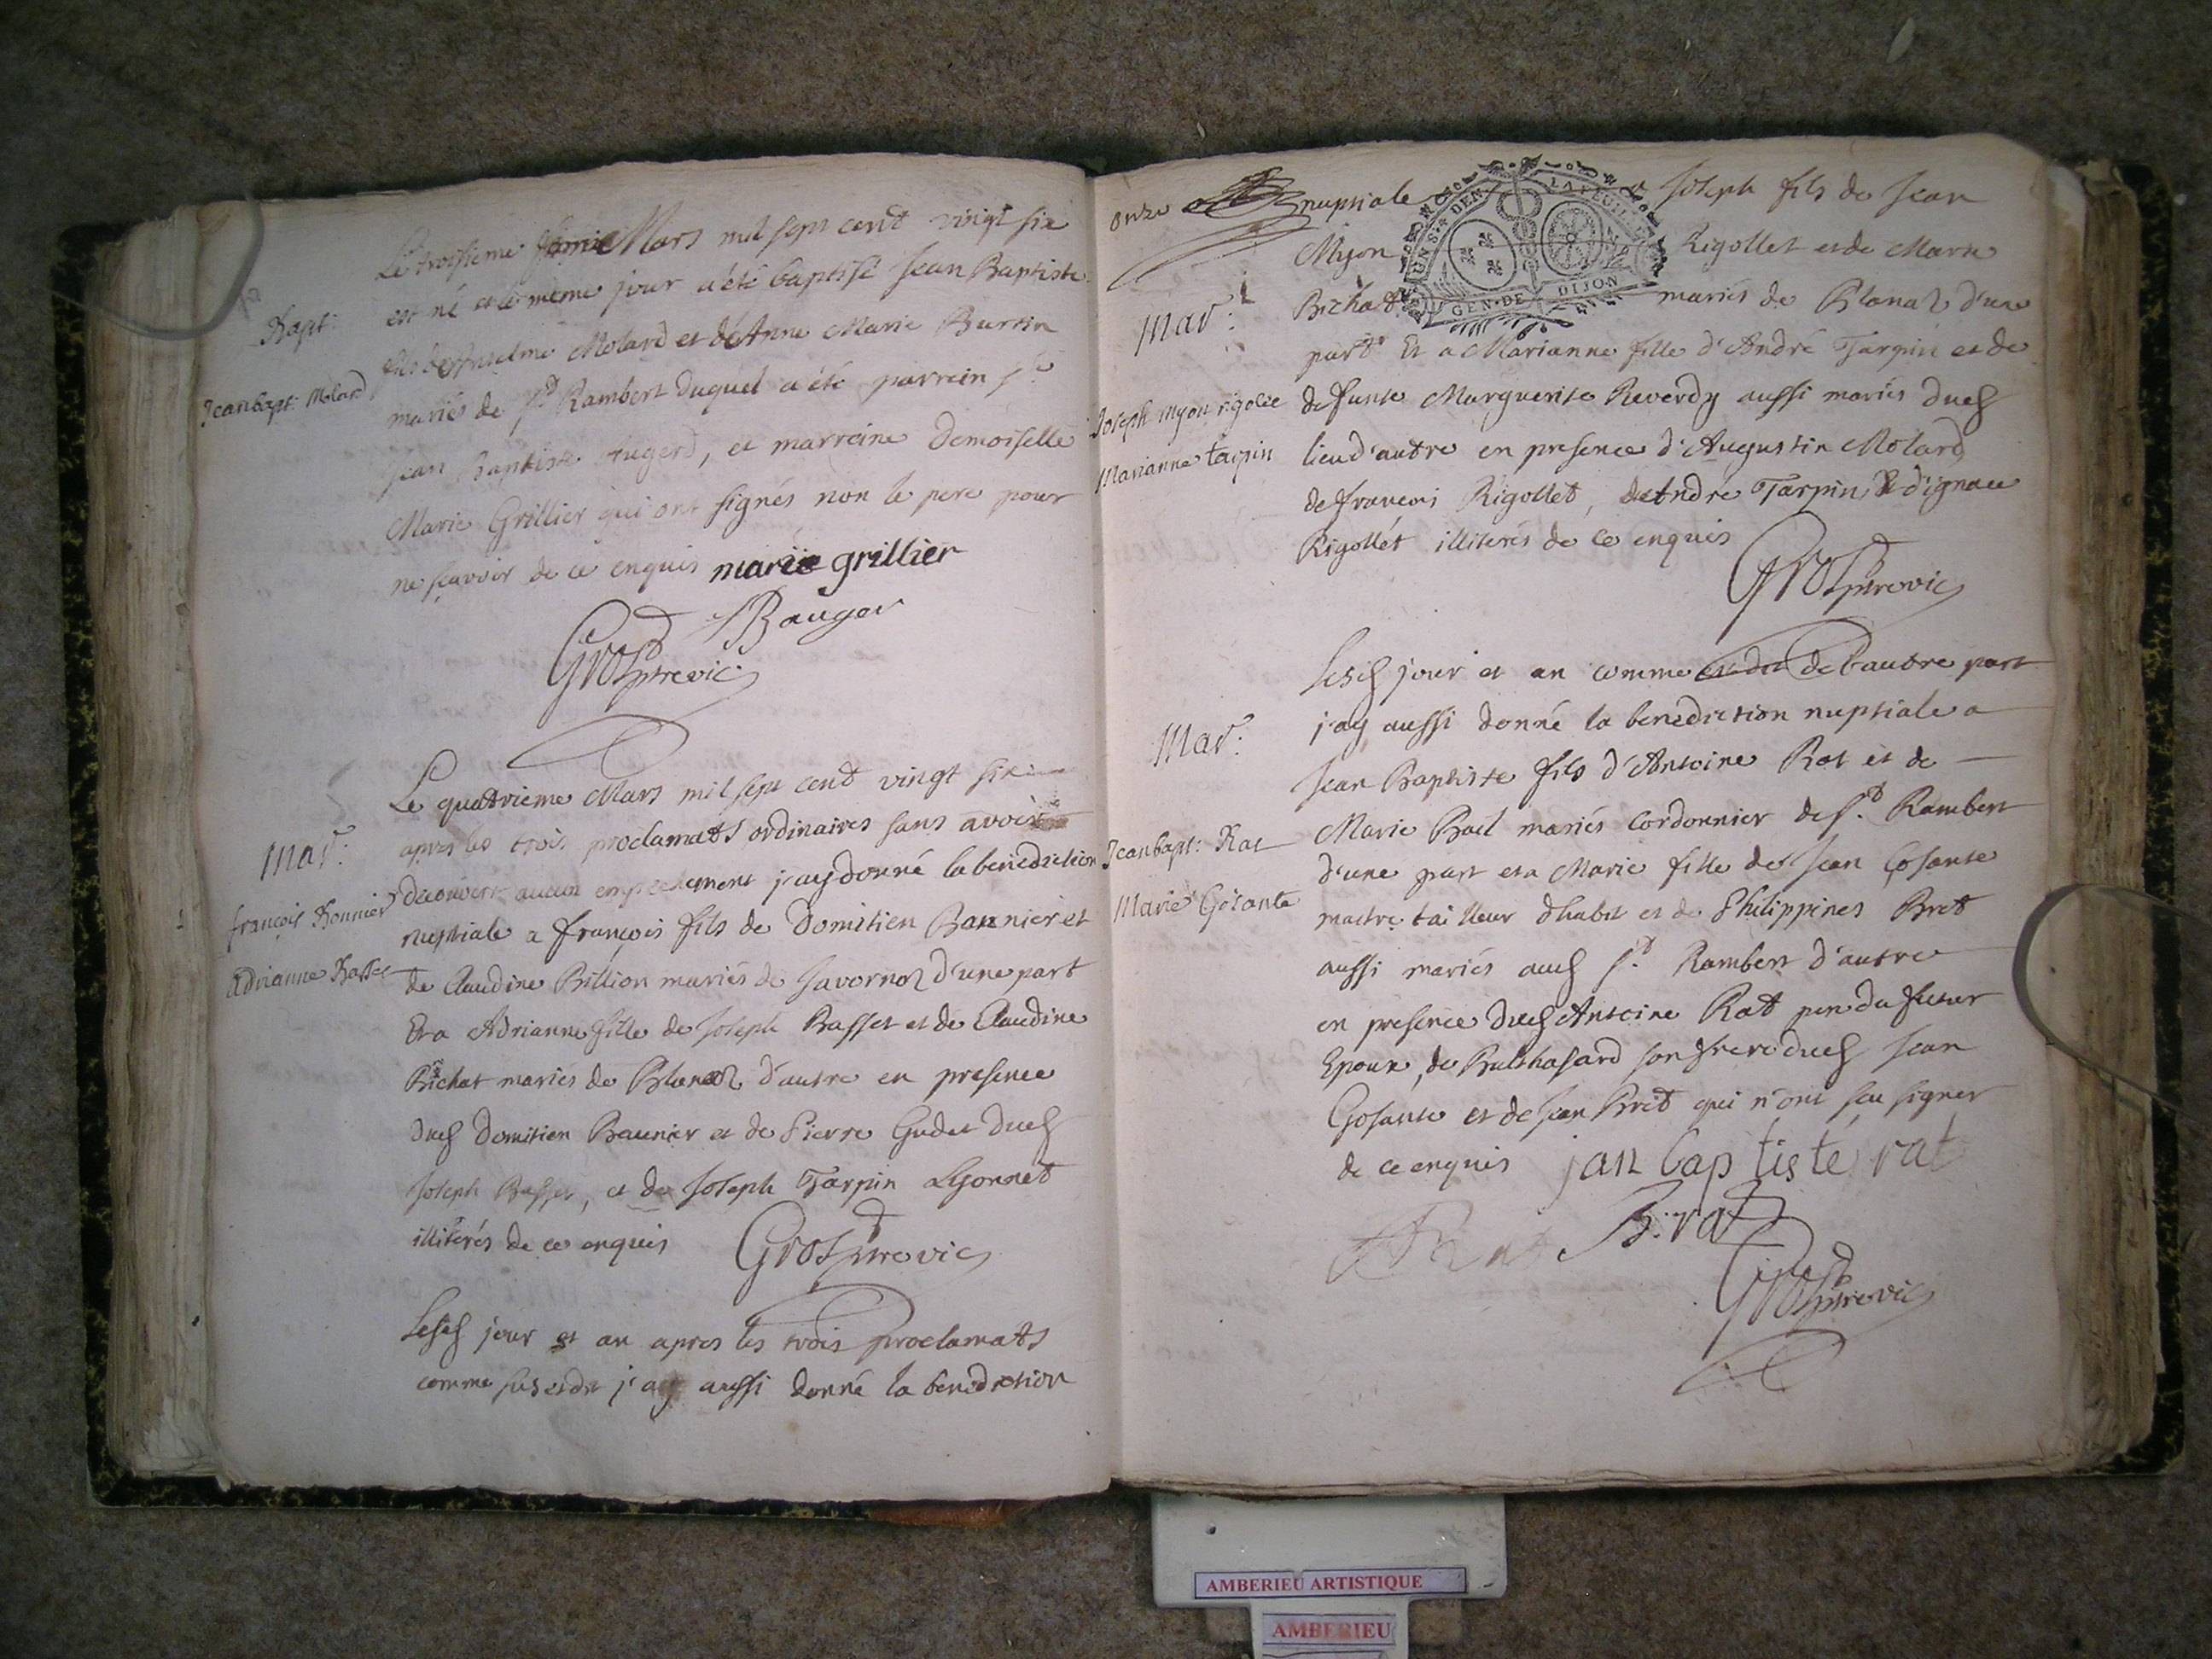 Le troisieme Mars mil sept cent vingt six
est né et le meme jour a été baptisé Jean Baptiste
Bapt:
fils d'Anselme Molard et de Anne Marie Burtin
Jean bapt: Molard
mariés de St Rambert duquel a été parrein sr
Jean Baptiste Augerd, et marreine Demoiselle
Marie Grillier qui ont signés non le pere pour
ne sçavoir de ce enquis marie grillier
JBauger
Gros ptre vic
Le quatrieme Mars mil sept cent vingt six
apres les trois proclamats ordinaires sans avoir
Mar:
decouvert aucun empechement j'ay donné la benediction
françois Bonnier
nuptiale a françois fils de Domitien Bonnier et
Adrianne Basset
de Claudine Billion mariés de Javornoz d'une part
Et a Adrianne fille de Joseph Basset et de Claudine
Bichat mariés de Blanaz d'autre en presence
dud Domitien Bounier et de Pierre Gudet dud
Joseph Basset, et de Joseph Tarpin Lyonnet
illiterés de ce enquis Gros ptre vic
Lesd jour et an apres les trois proclamats
comme sus est dit j'ay aussi donné la benediction
onze
nuptiale a Joseph fils de Jean
Myon Rigollet et de Marie
UNS DEN LA FEUILLE
GEN DE DIJON
Mar:
Bichat mariés de Blanaz d'une
part Et a Marianne fille d'André Tarpin et de
Joseph Myon rigolet
defunte Marguerite Reverdy aussi mariés dud
Marianne tarpin
lieu d'autre en presence d'Augustin Molard
de francois Rigollet, de André Tarpin & d'ignace
Rigollet illiterés de ce enquis
Gros ptre vic
Lesd jour et an comme de l'autre part
Mar:
j'ay aussi donné la benediction nuptiale a
Jean Baptiste fils d'Antoine Rat et de
Jean bapt: Rat
Marie Bail mariés cordonnier de St. Rambert
d'une part et a Marie fille de Jean Gosante
Marie Gosante
maitre tailleur d'habit et de Philippines Bret
aussi mariés aud St. Rambert d'autre
en presence dud Antoine Rat pere du futur
Epoux, de Balthasard son frere dud Jean
Gosante et de Jean Bret qui n'ont sçu signer
de ce enquis jan baptiste rat
A Rat B. rat
Gros ptre vic
AMBERIEU ARTISTIQUE
AMBERIEU